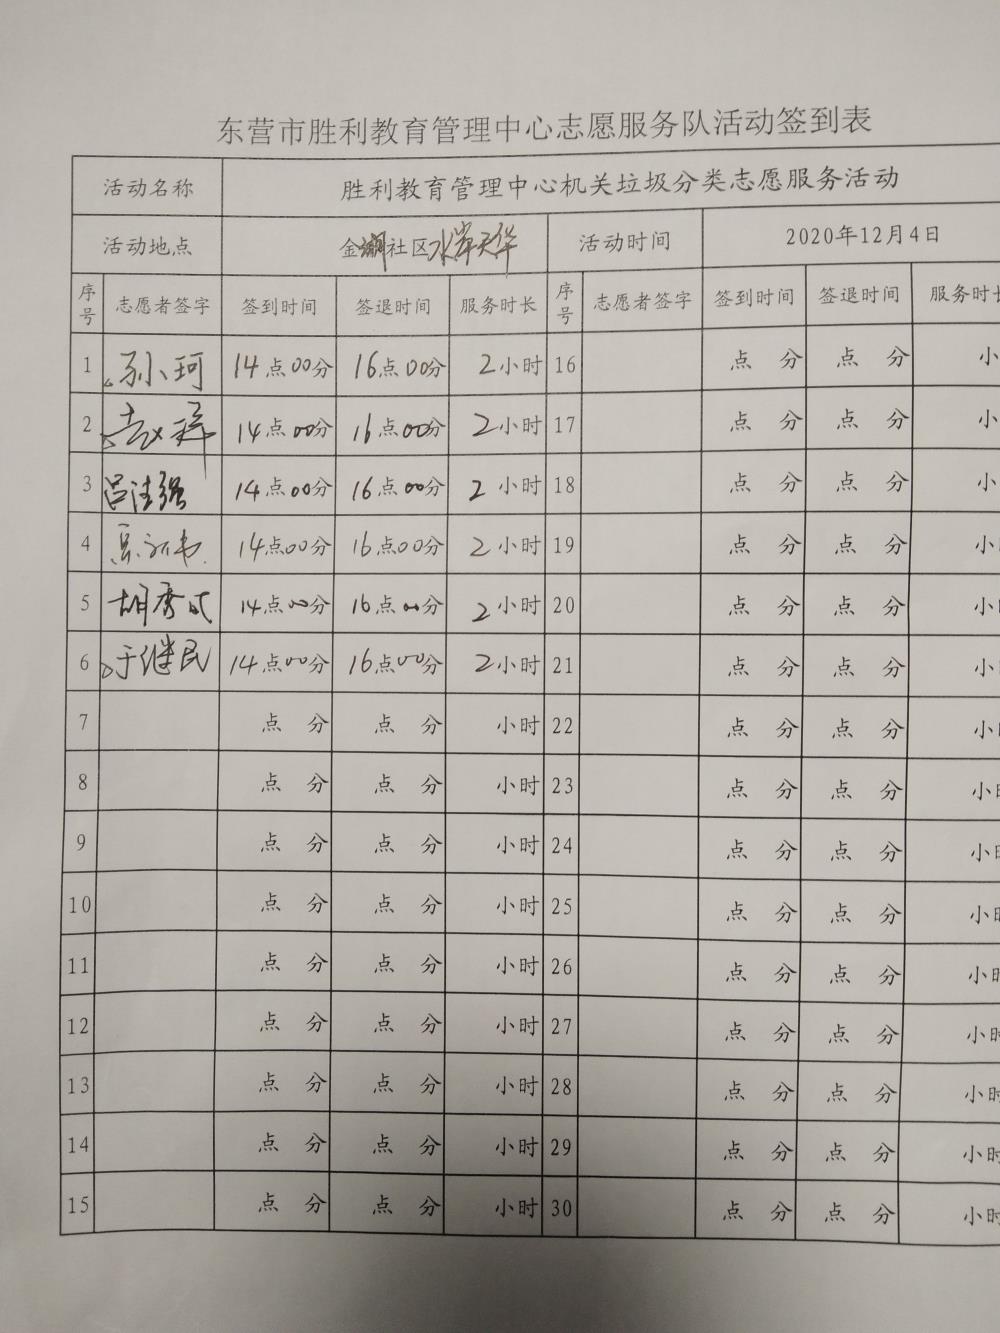 东营市胜利教育管理中心志愿服务队活动签到表
活动名称 胜利教育管理中心机关垃圾分类志愿服务活动
活动地点 金湖社区水岸天华 活动时间 2020年12月4日
序号 志愿者签字 签到时间 签退时间 服务时长 序号 志愿者签字 签到时间 签退时间 服务时长
1 孙珂 14点00分 16点00分 2小时 16 点 分 点 分 小
2 14点00分 16点00分 2小时 17 点 分 点 分 小
3 14点00分 16点00分 2小时 18 点 分 点 分 小
4 14点00分 16点00分 2小时 19 点 分 点 分 小
5 14点00分 16点00分 2小时 20 点 分 点 分 小
6 于继民 14点00分 16点00分 2小时 21 点 分 点 分 小
7 点 分 点 分 小时 22 点 分 点 分 小
8 点 分 点 分 小时 23 点 分 点 分 小时
9 点 分 点 分 小时 24 点 分 点 分 小时
10 点 分 点 分 小时 25 点 分 点 分 小时
11 点 分 点 分 小时 26 点 分 点 分 小时
12 点 分 点 分 小时 27 点 分 点 分 小时
13 点 分 点 分 小时 28 点 分 点 分 小时
14 点 分 点 分 小时 29 点 分 点 分 小时
15 点 分 点 分 小时 30 点 分 点 分 小时